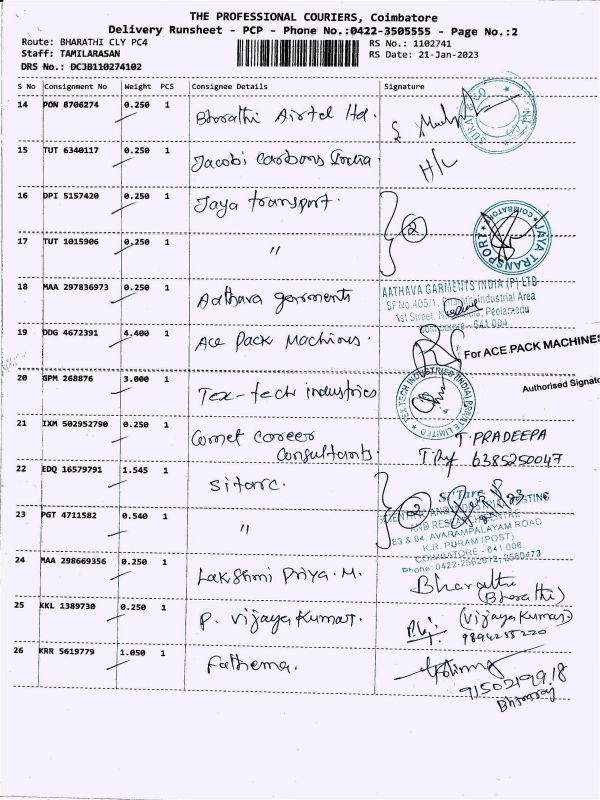 THE PROFESSIONAL COURIERS, Coimbatore
Delivery Runsheet - PCP - Phone No.:0422-3505555 - Page No.:2
Route: BHARATHI CLY PC4
RS No.: 1102741
Staff: TAMILARASAN
RS Date: 21-Jan-2023
DRS No.: DCJB110274102
S No Consignment No Weight PCS Consignee Details Signature
14 PON 8706274 0.250 1 Bharathi Airtel Ltd.
15 TUT 6340117 0.250 1 Jacobi Carbons India. H/L
16 DPI 5157420 0.250 1 Jaya transport. 2
JAYA TRANSPORT COIMBATORE
17 TUT 1015906 0.250 1 "
18 MAA 297836973 0.250 1 Aathava garments
AATHAVA GARMENTS INDIA (P) LTD
SF No.405/1, Bharathi Industrial Area
1st Street, Peelamedu
Coimbatore - 641 004
19 DDG 4672391 4.400 1 Ace Pack Machines.
For ACE PACK MACHINES
Authorised Signato
20 GPM 268876 3.000 1 Tex-tech industries
TEX TECH INDUSTRIES (INDIA) PRIVATE LIMITED
21 IXM 502952790 0.250 1 Comet career
Consultants. T. PRADEEPA
6385250047
22 EDQ 16579791 1.545 1 Sitarc. 2
Si'Tarc
23 PGT 4711582 0.540 1 "
AND RESEARCH CENTRE
83 & 84, AVARAMPALAYAM ROAD
K.R. PURAM (POST)
COIMBATORE - 641 006.
Phone: 0422-2562612, 2560473
24 MAA 298669356 0.250 1 Lakshmi Priya. M. Bharathi
(Bharathi)
25 KKL 1389730 0.250 1 P. Vijaya Kumar. (Vijaya Kumar)
9894255220
26 KRR 5619779 1.050 1 Fathema.
9150219918